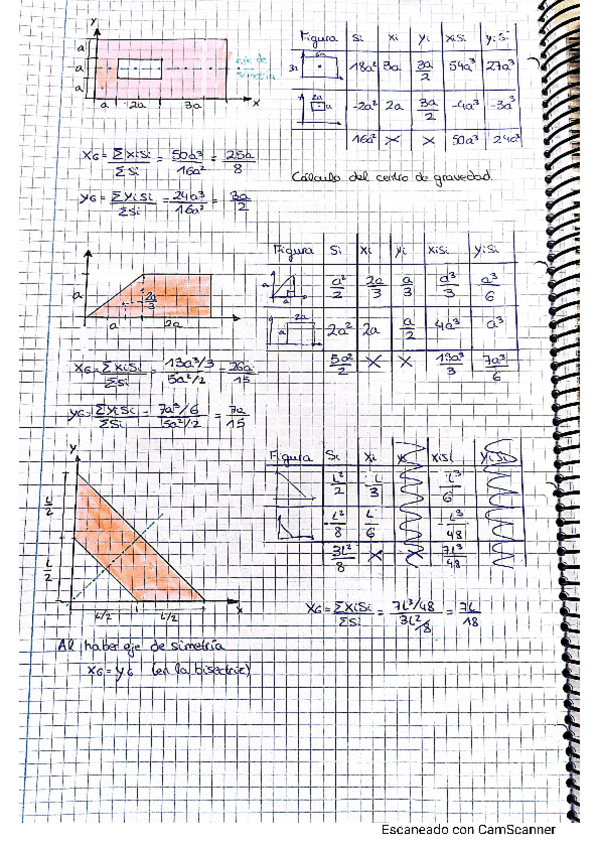 y
a
a
a
a 2a 3a x
eje de
simetría
Figura Si Xi Yi XiSi YiSi
6a
3a 18a² 3a 3a/2 54a³ 27a³
2a
a -2a² 2a 3a/2 -4a³ -3a³
16a² X X 50a³ 24a³
XG = ΣXiSi/ΣSi = 50a³/16a² = 25a/8
YG = ΣYiSi/ΣSi = 24a³/16a² = 3a/2
Cálculo del centro de gravedad.
a
2a/3
a 2a
Figura Si Xi Yi XiSi YiSi
a
a a²/2 2a/3 a/3 a³/3 a³/6
2a
a 2a² 2a a/2 4a³ a³
5a²/2 X X 13a³/3 7a³/6
XG = ΣXiSi/ΣSi = 13a³/3/5a²/2 = 26a/15
YG = ΣYiSi/ΣSi = 7a³/6/5a²/2 = 7a/15
y
L/2
L/2
L/2 L/2 x
Figura Si Xi Yi XiSi YiSi
L²/2 L/3 L³/6
-L²/8 L/6 -L³/48
3L²/8 X X 7L³/48
XG = ΣXiSi/ΣSi = 7L³/48/3L²/8 = 7L/18
Al haber eje de simetría
XG = YG (en la bisectriz)
Escaneado con CamScanner